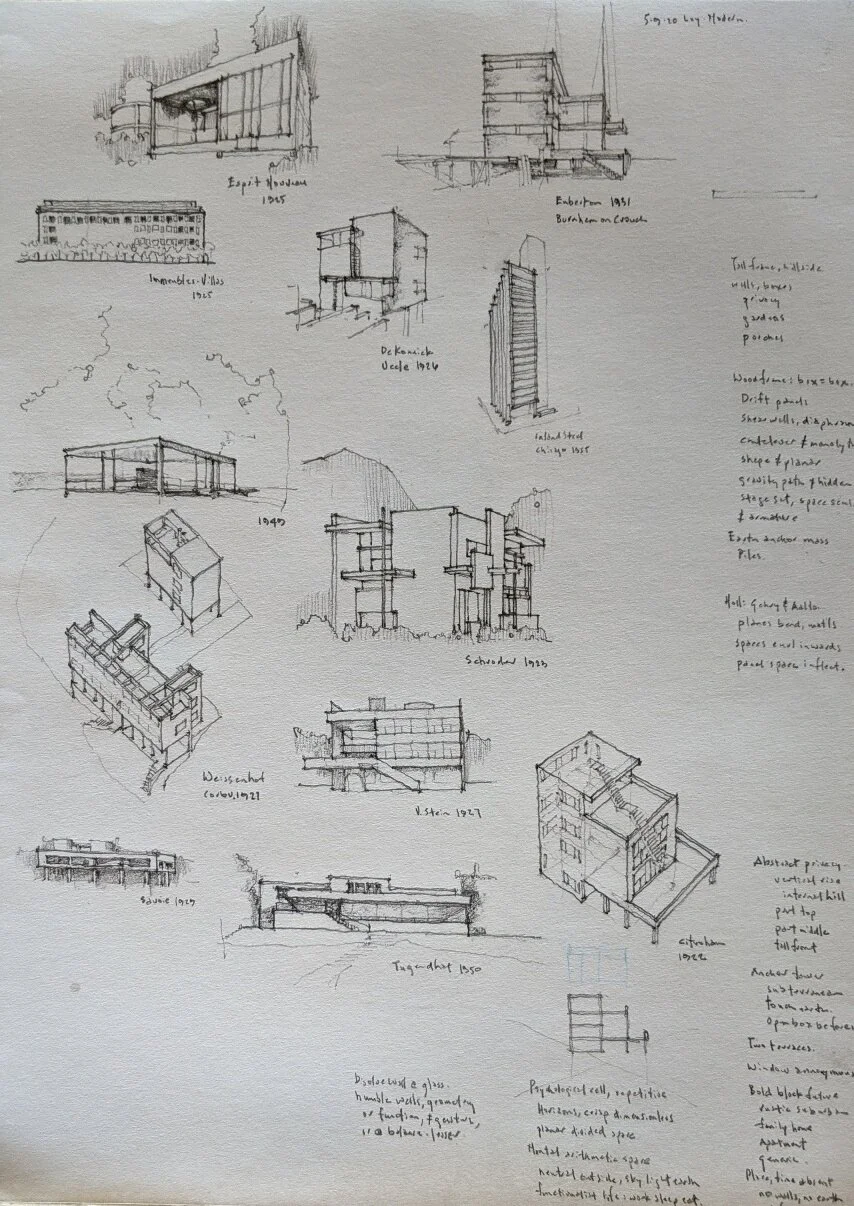 5.9.20 Modern.
Esprit Nouveau
1925
Emberton 1931
Burnham on Crouch
Immeubles-Villas
1925
De Koninck
Uccle 1926
Inland Steel
Chicago 1955
1949
Schroder 1923
Weissenhof
Corbu. 1927
V. Stein 1927
Savoie 1929
Tugendhat 1930
Citrohan
1922
Tall frame, hillside
walls, boxes
privacy
gardens
porches
Wood frame: box = box.
Drift panels
Shear walls, diaphram
cantelever &
shape & planar
gravity path & hidden
stage set, space
& armature
Earth anchor mass
Piles.
Holl: Gehry & Aalto
planes bend, mat'ls
spaces curl inwards
panel space inflect.
Abstract privacy.
vertical rise
internal hill
part top
part middle
tall front
Anchor tower
subterranean
touch earth.
Open box before
Two terraces.
Window anonymous
Bold black future
rustic suburban
family home
Apartment
generic.
Place, time absent
no walls, no earth
Disolve wall & glass.
humble walls, geometry
or function, & gesture,
balance.
Psychological cell, repetitive
Horizons, crisp dimensionless
planar divided space
Mental arithmetic space
neutral outside, sky light earth
functionalist life: work sleep eat.